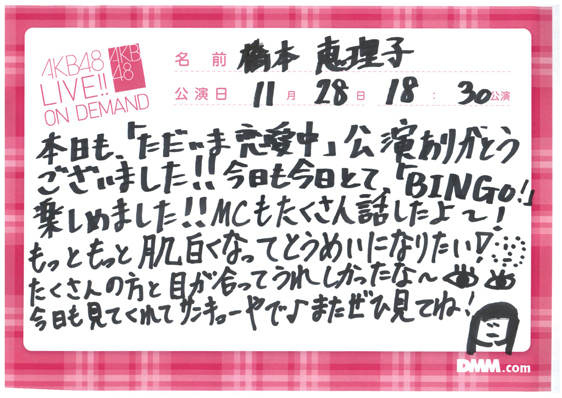 AKB48
LIVE!!
ON DEMAND
AKB
48
名前 橋本 恵理子
公演日 11月28日 18:30公演
本日も、「ただいま恋愛中」公演ありがとう
ございました!!今日も今日とて、「BINGO!」
楽しめました!!MCもたくさん話したよ〜!
もっともっと肌白くなってとうめいになりたい!
たくさんの方と目が合ってうれしかったな〜
今日も見てくれてサンキューやで♪またぜひ見てね!
DMM.com